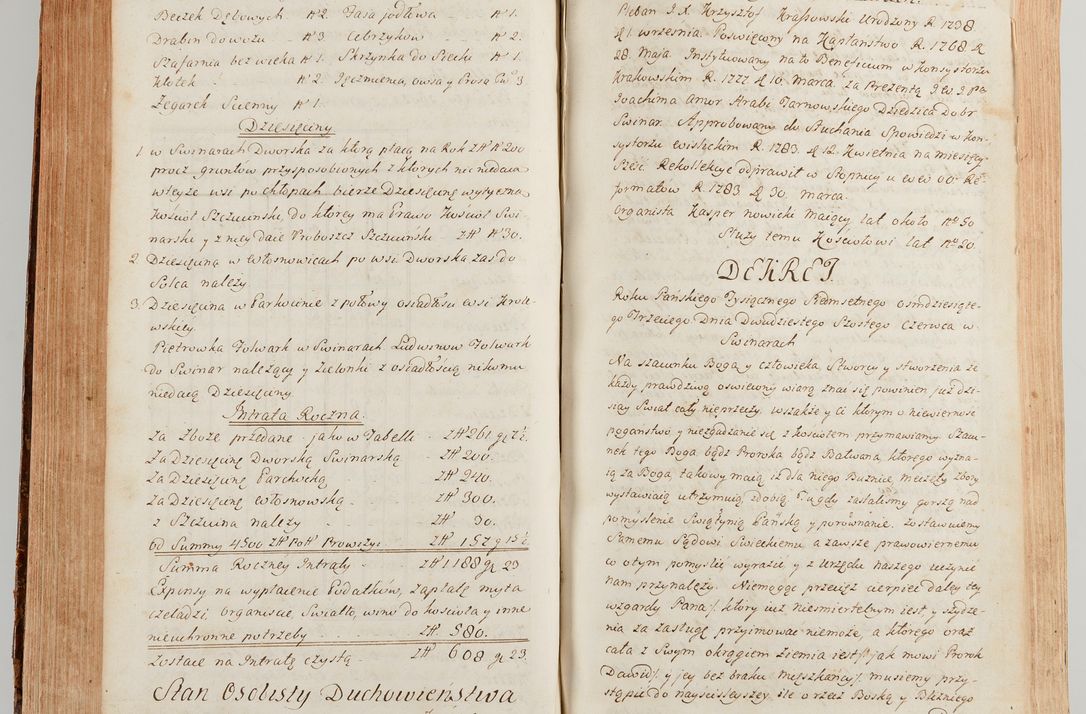 Beczek Dębowych. N° 2. Fasa jodłowa N° 1.
Drabin dowozu N° 3 Cebrzyków N° 2.
Szafarnia bez wieka N° 1. Skrzynka do N° 1.
Kłotek N° 2. Jęczmienia, owsa y Prosa 3
Zegarek Scienny N° 1.
Dziesięciny
1. w Swinarach Dworska za którą płacą na Rok Zł N° 200
procz gruntow przysposobionych z ktorych nic niedaią
wteyże wsi po chłopach bierze Dziesięcinę wytyczną
Kościoł Szczucinski, do ktorey ma Prawo Kościoł Swi-
narski y z niey daie Proboszcz Szczuciński Zł N° 30.
2. Dziesięcina w Włosnowicach po wsi Dworska zas do
Solca należy.
3. Dziesięcina w Parkocinie z połowy osiadłości wsi Krole-
wskiey.
Pietrowka Folwark w Swinarach Ludwinow Folwark
do Swinar należący y Zielonki z osiadłością nikomu
niedaią Dziesięciny.
Intrata Roczna.
Za Zboże przedane jako w Tabelli Zł 261 g 7½.
Za Dziesięcinę Dworską Swinarską Zł 200.
Za Dziesięcinę Parchocką Zł 240.
Za Dziesięcinę Włosnowską Zł 300.
z Szczucina należy Zł 30.
Od Summy 4500 Zł Pol Prowizyi Zł 157 g 15½
Summa Roczney Intraty Zł 1188 g 23
Expensy na wypłacenie Podatków, zapłatę myta
czeladzi, organiscie, Swiatło, wino do koscioła y inne
nieuchronne potrzeby Zł 580.
Zostaie na Intratę czystą Zł 608 g 23.
Stan Osobisty Duchowieństwa
Pleban J.X. Krzysztof Krassowski Urodzony R. 1738
d 1 wrzesnia. Poswięcony na Kapłanstwo R. 1768 d
28. Maja. Instytuowany na to Beneficium w Konsystorzu
Krakowskim R. 1777 d 10. Marca. za Prezentą JWJPa
Joachima Amor Hrabi Tarnowskiego Dziedzica Dobr
Swinar. Approbowany do Słuchania Spowiedzi w Kon-
systorzu Wislickim R. 1783. d 12. Kwietnia na miesięcy
Szesć. Rekollekcye odprawił w Stopnicy u WW OO. Re-
formatow R. 1783 d 30. marca.
Organista Kasper Nowicki Maiący lat około N° 50
Służy temu Kościołowi lat N° 20.
DEKRET.
Roku Pańskiego Tysiącznego Siedmsetnego osmdziesiąte-
go Trzeciego Dnia Dwudziestego Szostego Czerwca w
Swinarach
Na szacunku Boga y człowieka, Stworcy y stworzenia ze
każdy prawdziwą oswiecony wiarą znaisię powinien już dzi-
siay Swiat cały nieprzeczy. wszakże y Ci ktorym o niewiernosć
poganstwo y niezgadzanie się z kościołem przymawiamy. Szacu-
nek tego Boga bądz Proroka bądz Bałwana ktorego wyzna-
ią za Boga takowy maią iż dla niego Bużnice, meczety zbory
wystawiaią utrzymuią zdobią. Tu gdy zastalismy gorszą nad
pomyslenie Swiątynię Pańską y porownanie. zostawuiemy
Samemu Sądowi Swieckiemu a zawsze prawowiernemu
co otym pomyslić wyrazić y z Urzędu naszego uczynić
nam przynależy. Niemogąc przeciż cierpieć daley tey
wzgardy Pana/: który iuż niesmiertelnym iest y szydze-
nia za zasługę przyimować niemoże, a ktorego oraz
cała z Swym okręgiem ziemia iest/: jak mowi Prorok
Dawid/: y iey bez braku mieszkańcy/: musiemy przy-
stąpić do nayscisleyszey ile o rzecz Boską y Bliźniego